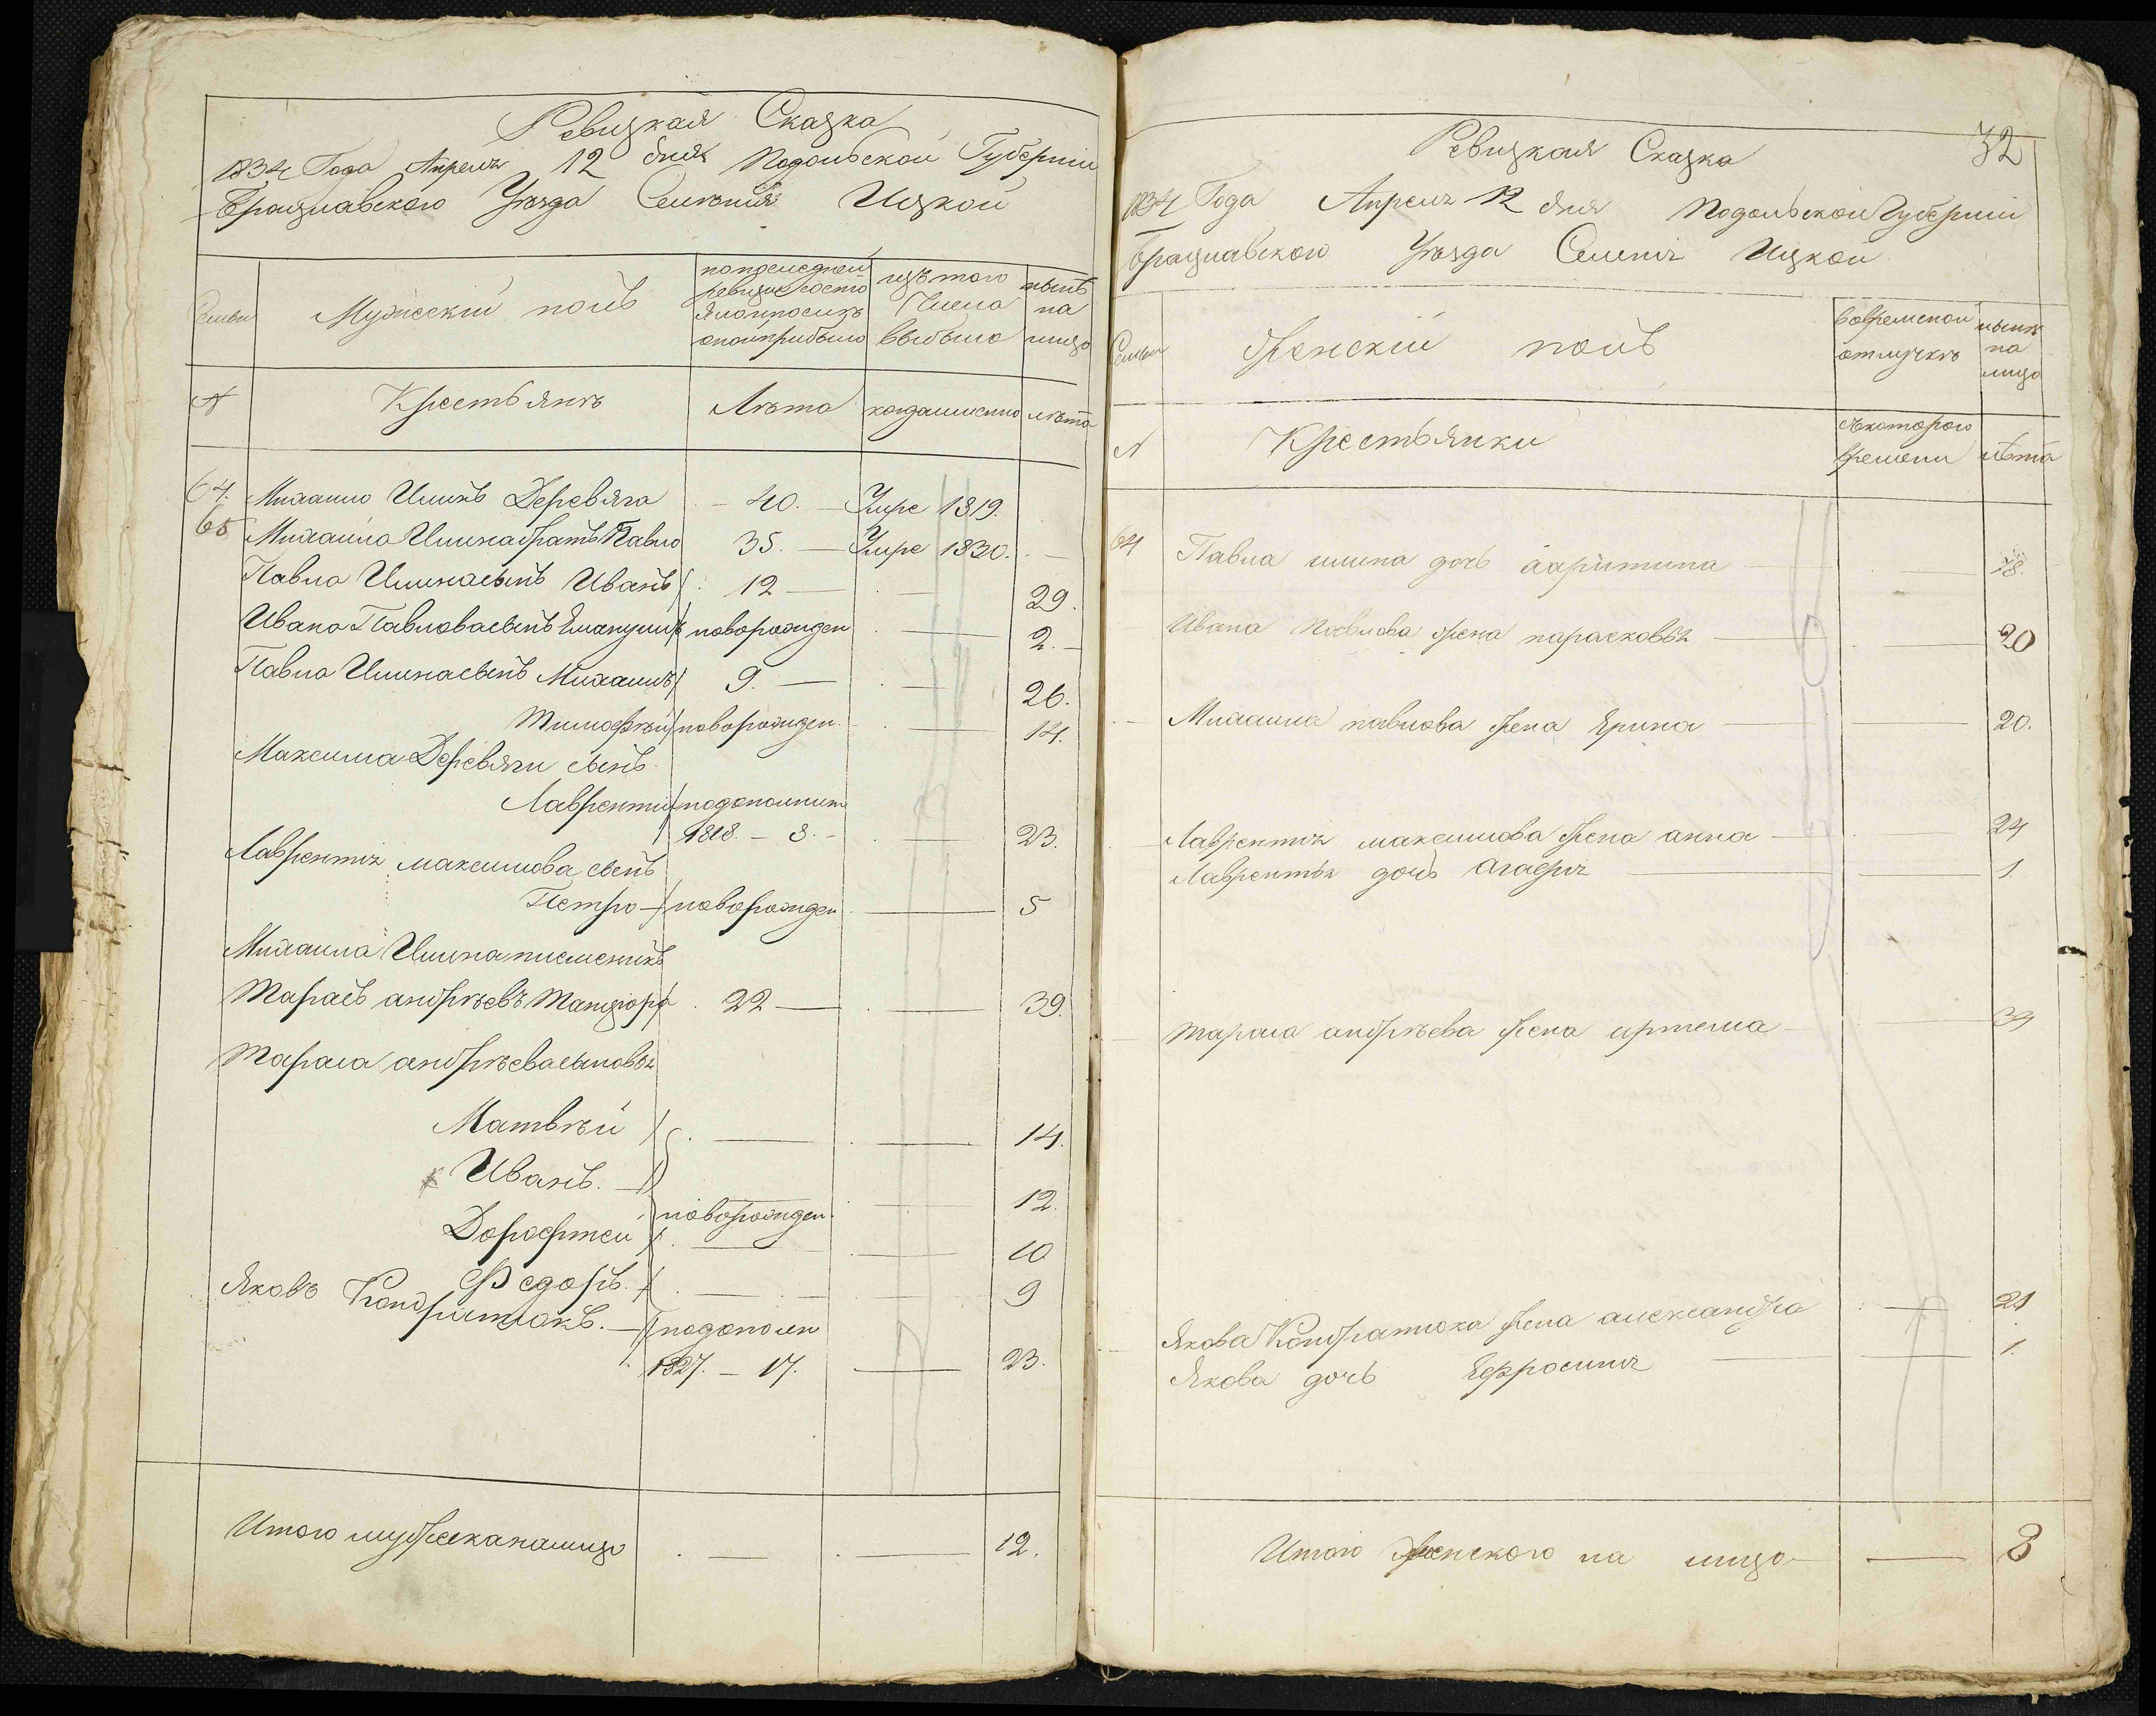 Ревизкая Сказка
1834 Года Апреля 12 дня Подольской Губернии
Брацлавского Уѣзда Селѣния Ицкой
Семьи
Мужескій полъ
по последней ревизіи состояло и после оной прибыло
изъ того Числа выбыло
нынѣ на лицо
№
Крестьянѣ
Лѣта
когда именно
лѣта
64. Михайло Илинъ Деревяга - 40. - Умре 1819.
65 Михайла Илина братъ Павло 35. - Умре 1830. -
Павла Илина сынъ Иванъ 12 - 29.
Ивана Павлова сынъ новорожден 2. -
Павла Илина сынъ Михаилъ 9. - 26.
Тимофѣй новорожден. 14.
Максима Деревяги сынъ
Лаврентій подополнит
1818. - 8. - 23.
Лаврентія максимова сынъ
Петро - новорожден 5
Михаила Илина племеникъ
Тарасъ андрѣевъ 22 - 39.
Тараса андрѣева сыновья
Матвѣй 14.
Иванъ. - 12.
новорожден.
Дорофтей 10
Федоръ. 9
Яковъ Кондратюкъ. - подополн
1827. - 17. 23.
Итого мужеска на лицо 12.
32
Ревизкая Сказка
1834 Года Апреля 12 дня Подольской Губернии
Брацлавского Уѣзда Селения Ицкой
Семьи
Женскій полъ
во временой отлучкѣ
нынѣ на лицо
№
Крестьянки
съ которого времени
лѣта
64 Павла илина дочь харитина 18.
Ивана Павлова жена парасковья 20
Михаила павлова жена Ярина 20.
Лаврентія максимова жена анна 24
Лаврентья дочь Агафия 1.
тараса андрѣева жена 34
Якова Кондратюка жена александра 21
Якова дочь Ефросиния 1.
Итого женского на лицо 8